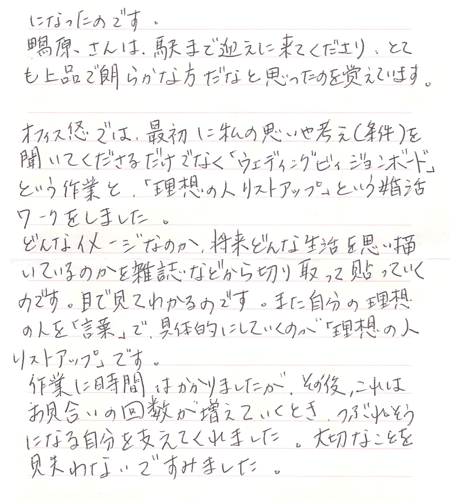 になったのです。
鴨原さんは、駅まで迎えに来てくださり、とて
も上品で朗らかな方だなと思ったのを覚えています。
オフィス悠では、最初に私の思いや考え(条件)を
聞いてくださるだけでなく「ウェディングビィジョンボード」
という作業と、「理想の人リストアップ」という婚活
ワークをしました。
どんなイメージなのか、将来どんな生活を思い描
いているのかを雑誌などから切り取って貼っていく
のです。目で見てわかるのです。また自分の理想
の人を「言葉」で、具体的にしていくのが「理想の人
リストアップ」です。
作業に時間はかかりましたが、その後、これは
お見合いの回数が増えていくとき、つぶれそう
になる自分を支えてくれました。大切なことを
見失わないですみました。